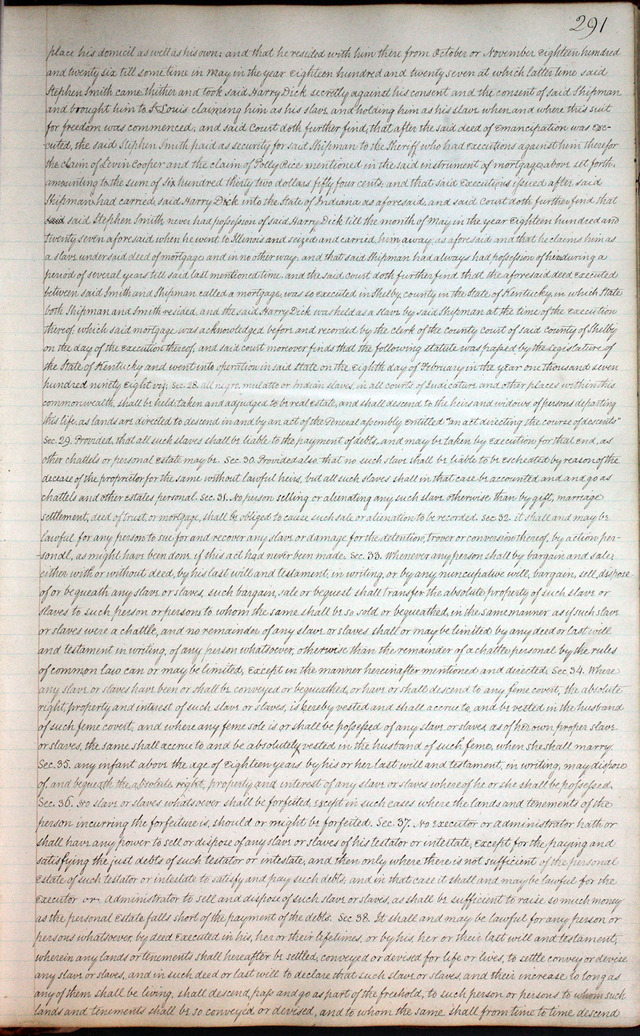 291
place his domicil as well as his own: and that he resided with him there from October or November Eighteen hundred
and twenty six till some time in May in the year Eighteen hundred and twenty seven at which latter time said
Stephen Smith came thither and took said Harry Dick secretly against his consent and the consent of said Shipman
and brought him to St Louis claiming him as his slave and holding him as his slave when and where this suit
for freedom was commenced, and said Court doth further find, that after the said deed of Emancipation was Exe-
cuted, the said Stephen Smith paid as security for said Shipman to the Sheriff who had executions against him therefor
the claim of Levin Cooper and the claim of Polly Rice mentioned in the said instrument of mortgage above set forth
amounting to the sum of Six hundred thirty two dollars fifty four cents, and that said Executions issued after said
Shipman had carried said Harry Dick into the State of Indiana as aforesaid, and said Court doth further find that
said Stephen Smith never had possession of said Harry Dick till the month of May in the year Eighteen hundred and
twenty seven aforesaid when he went to Illinois and seized and carried him away as aforesaid and that he claims him as
a slave under said deed of mortgage and in no other way, and that said Shipman had always had possession of him during a
period of several years till said last mentioned time, and the said court doth further find that the aforesaid deed executed
between said Smith and Shipman called a mortgage, was so executed in Shelby county in the State of Kentucky, in which State
both Shipman and Smith resided, and the said Harry Dick was held as a slave by said Shipman at the time of the execution
thereof, which said mortgage was acknowledged before and recorded by the clerk of the county court of said county of Shelby
on the day of the execution thereof, and said court moreover finds that the following statute was passed by the legislature of
the State of Kentucky and went into operation in said state on the eighth day of February in the year one thousand seven
hundred ninety eight viz; Sec. 28. all negro, mulatto or Indian slaves, in all courts of Judicature and other places within this
commonwealth, shall be held, taken and adjudged to be real estate, and shall descend to the heirs and widows of persons departing
this life, as lands are directed to descend in and by an act of the General assembly entitled "an act directing the course of descents"
Sec. 29. Provided, that all such slaves shall be liable to the payment of debts, and may be taken by execution for that end, as
other chattels or personal estate may be. Sec. 30. Provided also that no such slave shall be liable to be escheated by reason of the
decease of the proprietor for the same without lawful heirs, but all such slaves shall in that case be accounted and and go as
chattels and other estates personal. Sec. 31. No person selling or alienating any such slave otherwise than by gift, marriage
settlement, deed of trust, or mortgage, shall be obliged to cause such sale or alienation to be recorded. Sec. 32. it shall and may be
lawful for any person to sue for and recover any slave or damage for the detention, trover or conversion thereof, by action per-
-sonal, as might have been done if this act had never been made. Sec. 33. Whenever any person shall by bargain and sale
either with or without deed, by his last will and testament, in writing, or by any nuncupative will, bargain, sell, dispose
of or bequeath any slave or slaves, such bargain, sale or bequest shall transfer the absolute property of such slave or
slaves to such person or persons to whom the same shall be so sold or bequeathed, in the same manner as if such slave
or slaves were a chattle, and no remainder of any slave or slaves shall or may be limited by any deed or last will
and testament in writing, of any person whatsoever, otherwise than the remainder of a chattle personal by the rules
of common law can or may be limited, Except in the manner hereinafter mentioned and directed. Sec. 34. Where
any slave or slaves have been or shall be conveyed or bequeathed, or have or shall descend to any feme covert, the absolute
right, property and interest of such slave or slaves, is hereby vested and shall accrue to, and be vested in the husband
of such feme covert, and where any feme sole is or shall be possessed of any slave or slaves as of her own proper slave
or slaves, the same shall accrue to and be absolutely vested in the husband of such feme, when she shall marry.
Sec. 35. any infant above the age of Eighteen years by his or her last will and testament, in writing, may dispose
of and bequeath the absolute right, property and interest of any slave or slaves whereof he or she shall be possessed.
Sec. 36. No slave or slaves whatsoever shall be forfeited, Except in such cases where the lands and tenements of the
person incurring the forfeiture is, should or might be forfeited. Sec. 37. No Executor or administrator hath or
shall have any power to sell or dispose of any slave or slaves of his testator or intestate, except for the paying and
satisfying the just debts of such testator or intestate, and then only where there is not sufficient of the personal
Estate of such testator or intestate to satisfy and pay such debts, and in that case it shall and may be lawful for the
Executor or administrator to sell and dispose of such slave or slaves, as shall be sufficient to raise so much money
as the personal Estate falls short of the payment of the debts. Sec. 38. It shall and may be lawful for any person or
persons whatsoever, by deed Executed in his, her or their lifetimes, or by his, her or their last will and testament,
wherein any lands or tenements shall hereafter be settled, conveyed or devised for life or lives, to settle convey or devise
any slave or slaves, and in such deed or last will to declare that such slave or slaves, and their increase, so long as
any of them shall be living, shall descend, pass and go as part of the freehold, to such person or persons to whom such
lands and tenements shall be so conveyed or devised, and to whom the same shall from time to time descend